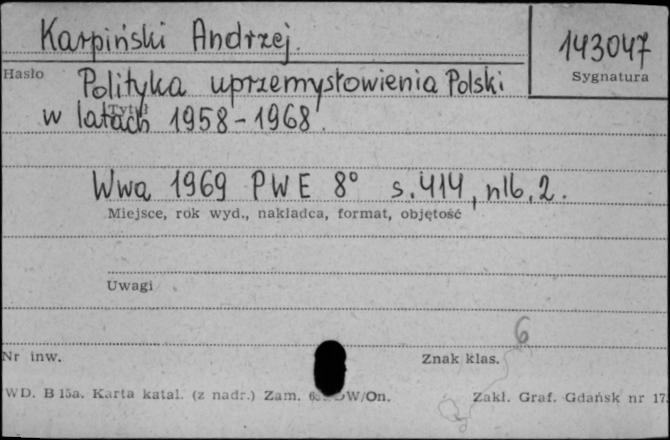 Karpiński Andrzej.
143047
Hasło
Sygnatura
Polityka uprzemysłowienia Polski
Tytuł
w latach 1958-1968.
Wwa 1969 PWE 8° s. 414, nlb. 2.
Miejsce, rok wyd., nakładca, format, objętość
Uwagi
6
Nr inw.
Znak klas.
WD. B 15a. Karta katal. (z nadr.) Zam. W/On.
Zakł. Graf. Gdańsk nr 17